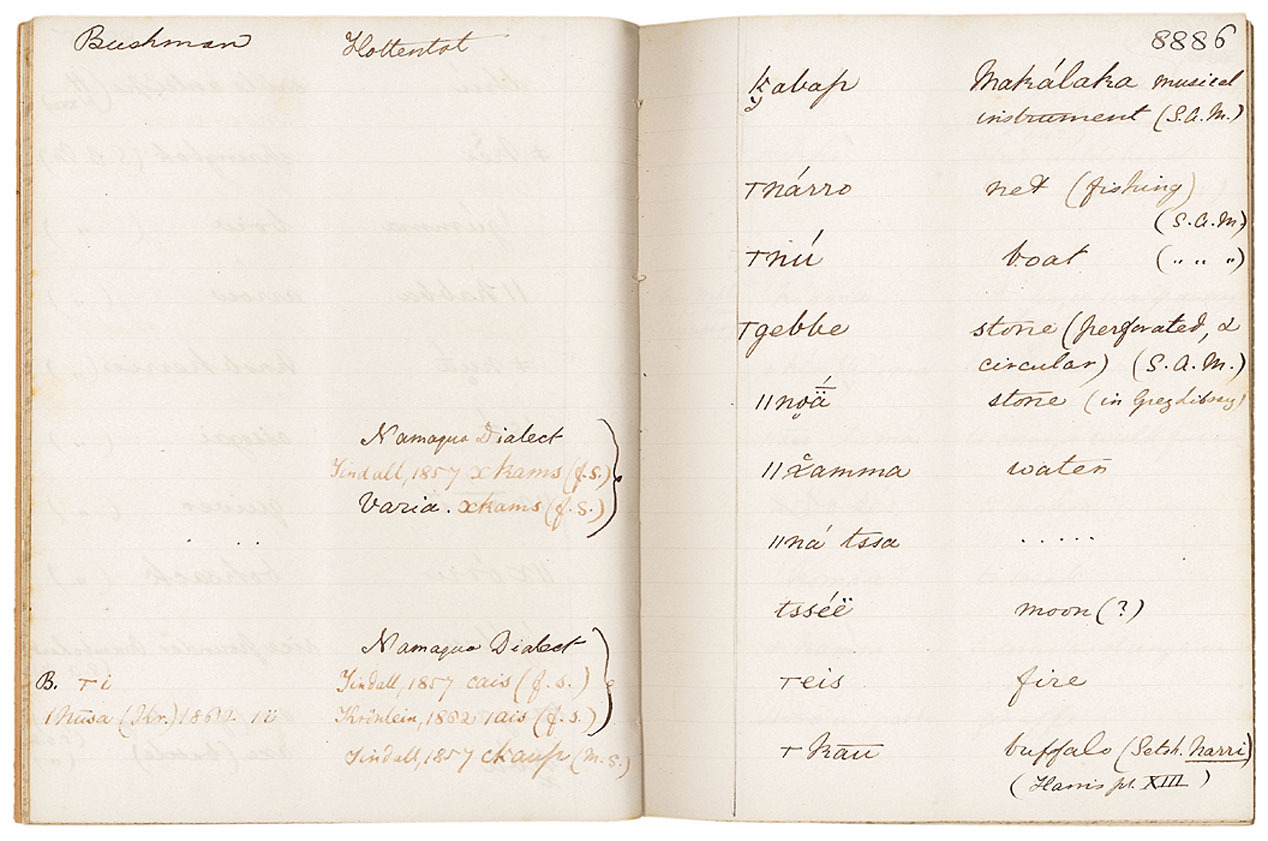 Bushman Hottentot
Namaqua Dialect
Tindall, 1857 xkams (f.s.)
Varia. xkams (f.s.)
. . .
Namaqua Dialect
B. ꞇ i Tindall, 1857 cais (f.s.)
(Hr.) 1862. Krönlein, 1862 ıais (f.s.)
Tindall, 1857 ckaup (m.s.)
8886
k̬abap Makálaka musical
instrument (S.A.M.)
ꞇnárro net (fishing)
(S.A.M.)
ꞇnú boat („ „ „)
ꞇgebbe stone (perforated, &
circular) (S.A.M.)
ǁno̯ä́ stone (in Grey Library)
ǁx̌amma water
ǁná tssa . . . . .
tsséë moon (?)
ꞇeis fire
ꞇkāū buffalo (Setsh. narri)
(Harris pl. XIII)